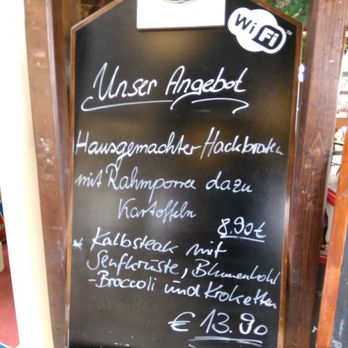 WiFi
Unser Angebot
Hausgemachter Hackbraten
mit Rahmporree dazu
Kartoffeln
8.90€
* Kalbsteak mit
Senfkrüste, Blumenkohl
-Broccoli und Kroketten
€ 13.90